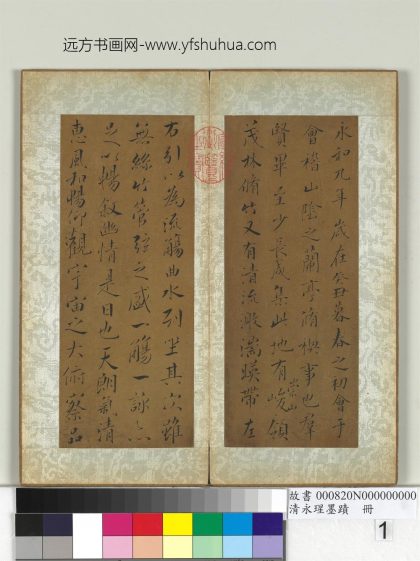 远方书画网-www.yfshuhua.com
永和九年歲在癸丑暮春之初會于
會稽山陰之蘭亭脩禊事也羣
賢畢至少長咸集此地有崇山峻領
茂林脩竹又有清流激湍暎帶左
右引以為流觴曲水列坐其次雖
無絲竹管弦之盛一觴一詠亦
足以暢敘幽情是日也天朗氣清
惠風和暢仰觀宇宙之大俯察品
故書 000820N000000000
清永瑆墨蹟 冊
1